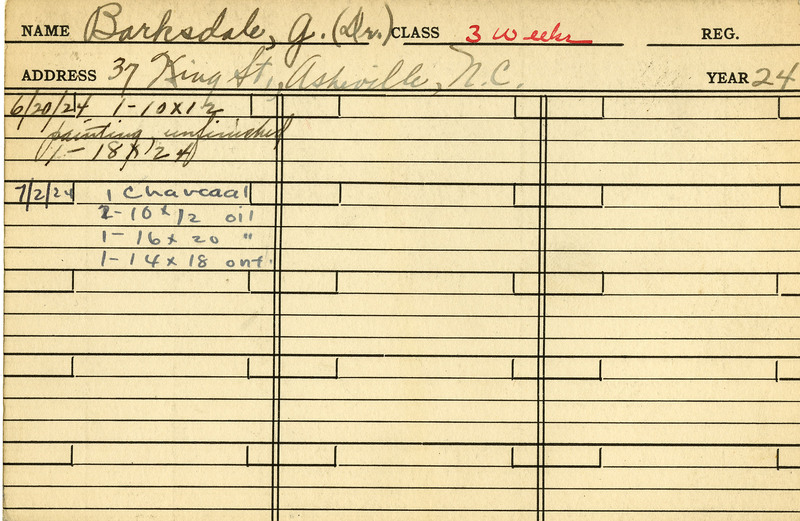 NAME Barksdale, G. (Dr.) CLASS 3 weeks REG.
ADDRESS 37 King St., Asheville, N.C. YEAR 24
6/20/24 1-10x12
painting unfinished
1-18x24
7/2/24 1 charcoal
2-10x12 oil
1-16x20 "
1-14x18 ont.